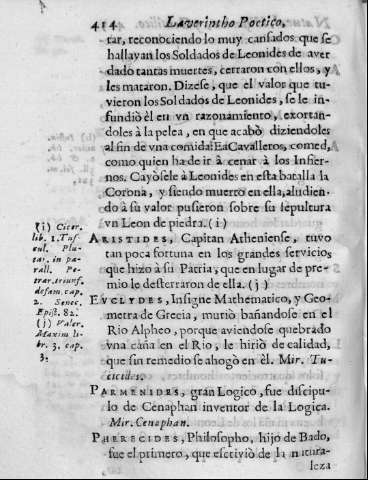 414 Laverintho Poetico,
tar, reconociendo lo muy cansados que se
hallavan los Soldados de Leonides de aver
dado tantas muertes, cerraron con ellos, y
les mataron. Dizese, que el valor que tu-
vieron los Soldados de Leonides, se le in-
fundiò èl en vn razonamiento, exortan-
doles à la pelea, en que acabò diziendoles
al fin de vna comida: Ea Cavalleros, comed,
como quien ha de ir à cenar à los Infier-
nos. Cayòsele à Leonides en esta batalla la
Corona, y siendo muerto en ella, aludien-
do à su valor pusieron sobre su sepultura
vn Leon de piedra. (i)
ARISTIDES, Capitan Atheniense, tuvo
tan poca fortuna en los grandes servicios
que hizo à su Patria, que en lugar de pre-
mio le desterraron de ella. (j)
EVCLYDES, Insigne Mathematico, y Geo-
metra de Grecia, muriò bañandose en el
Rio Alpheo, porque aviendose quebrado
vna caña en el Rio, le hiriò de calidad,
que sin remedio se ahogò en èl. Mir. Tu-
cicides.
PARMENIDES, gran Logico, fue discipu-
lo de Cenaphan inventor de la Logica.
Mir. Cenaphan.
PHERECIDES, Philosopho, hijo de Bado,
fue el primero, que escriviò de la natura-
leza
(i) Cicer.
lib. 1. Tus
cul. Plu-
tar. in pa-
rall. Pe-
trar. triunf.
de fam. cap.
2. Senec.
Epist. 82.
(j) Valer.
Maxim li-
br. 3. cap.
3.